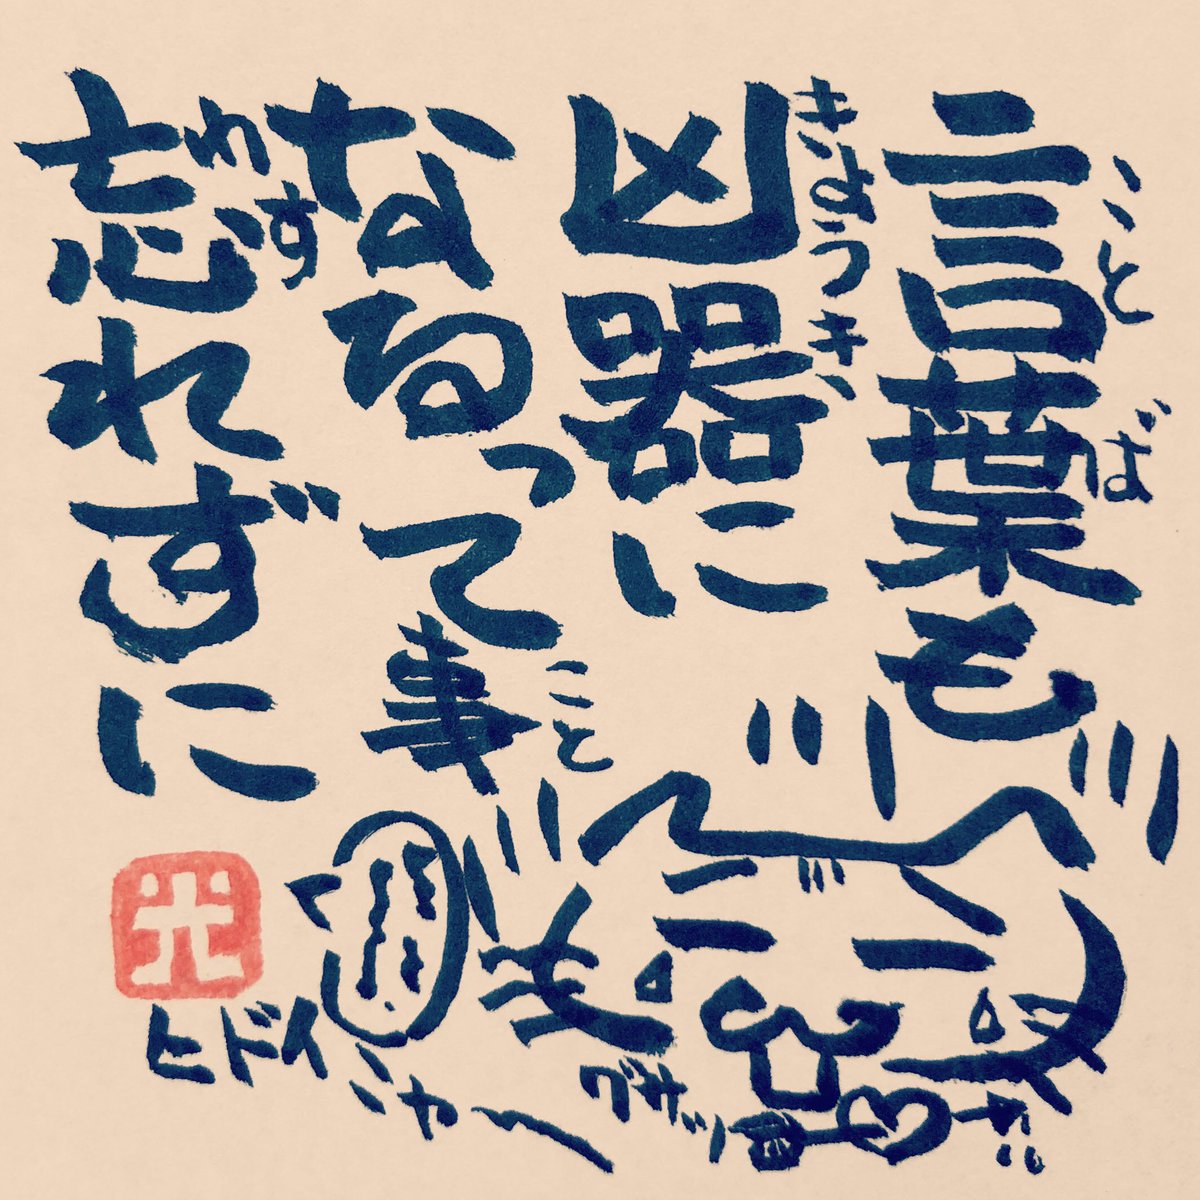 言葉も
ことば
凶器に
きょうき
なるって事
こと
忘れずに
わす
光
ヒドイ
ニャー
グサッ